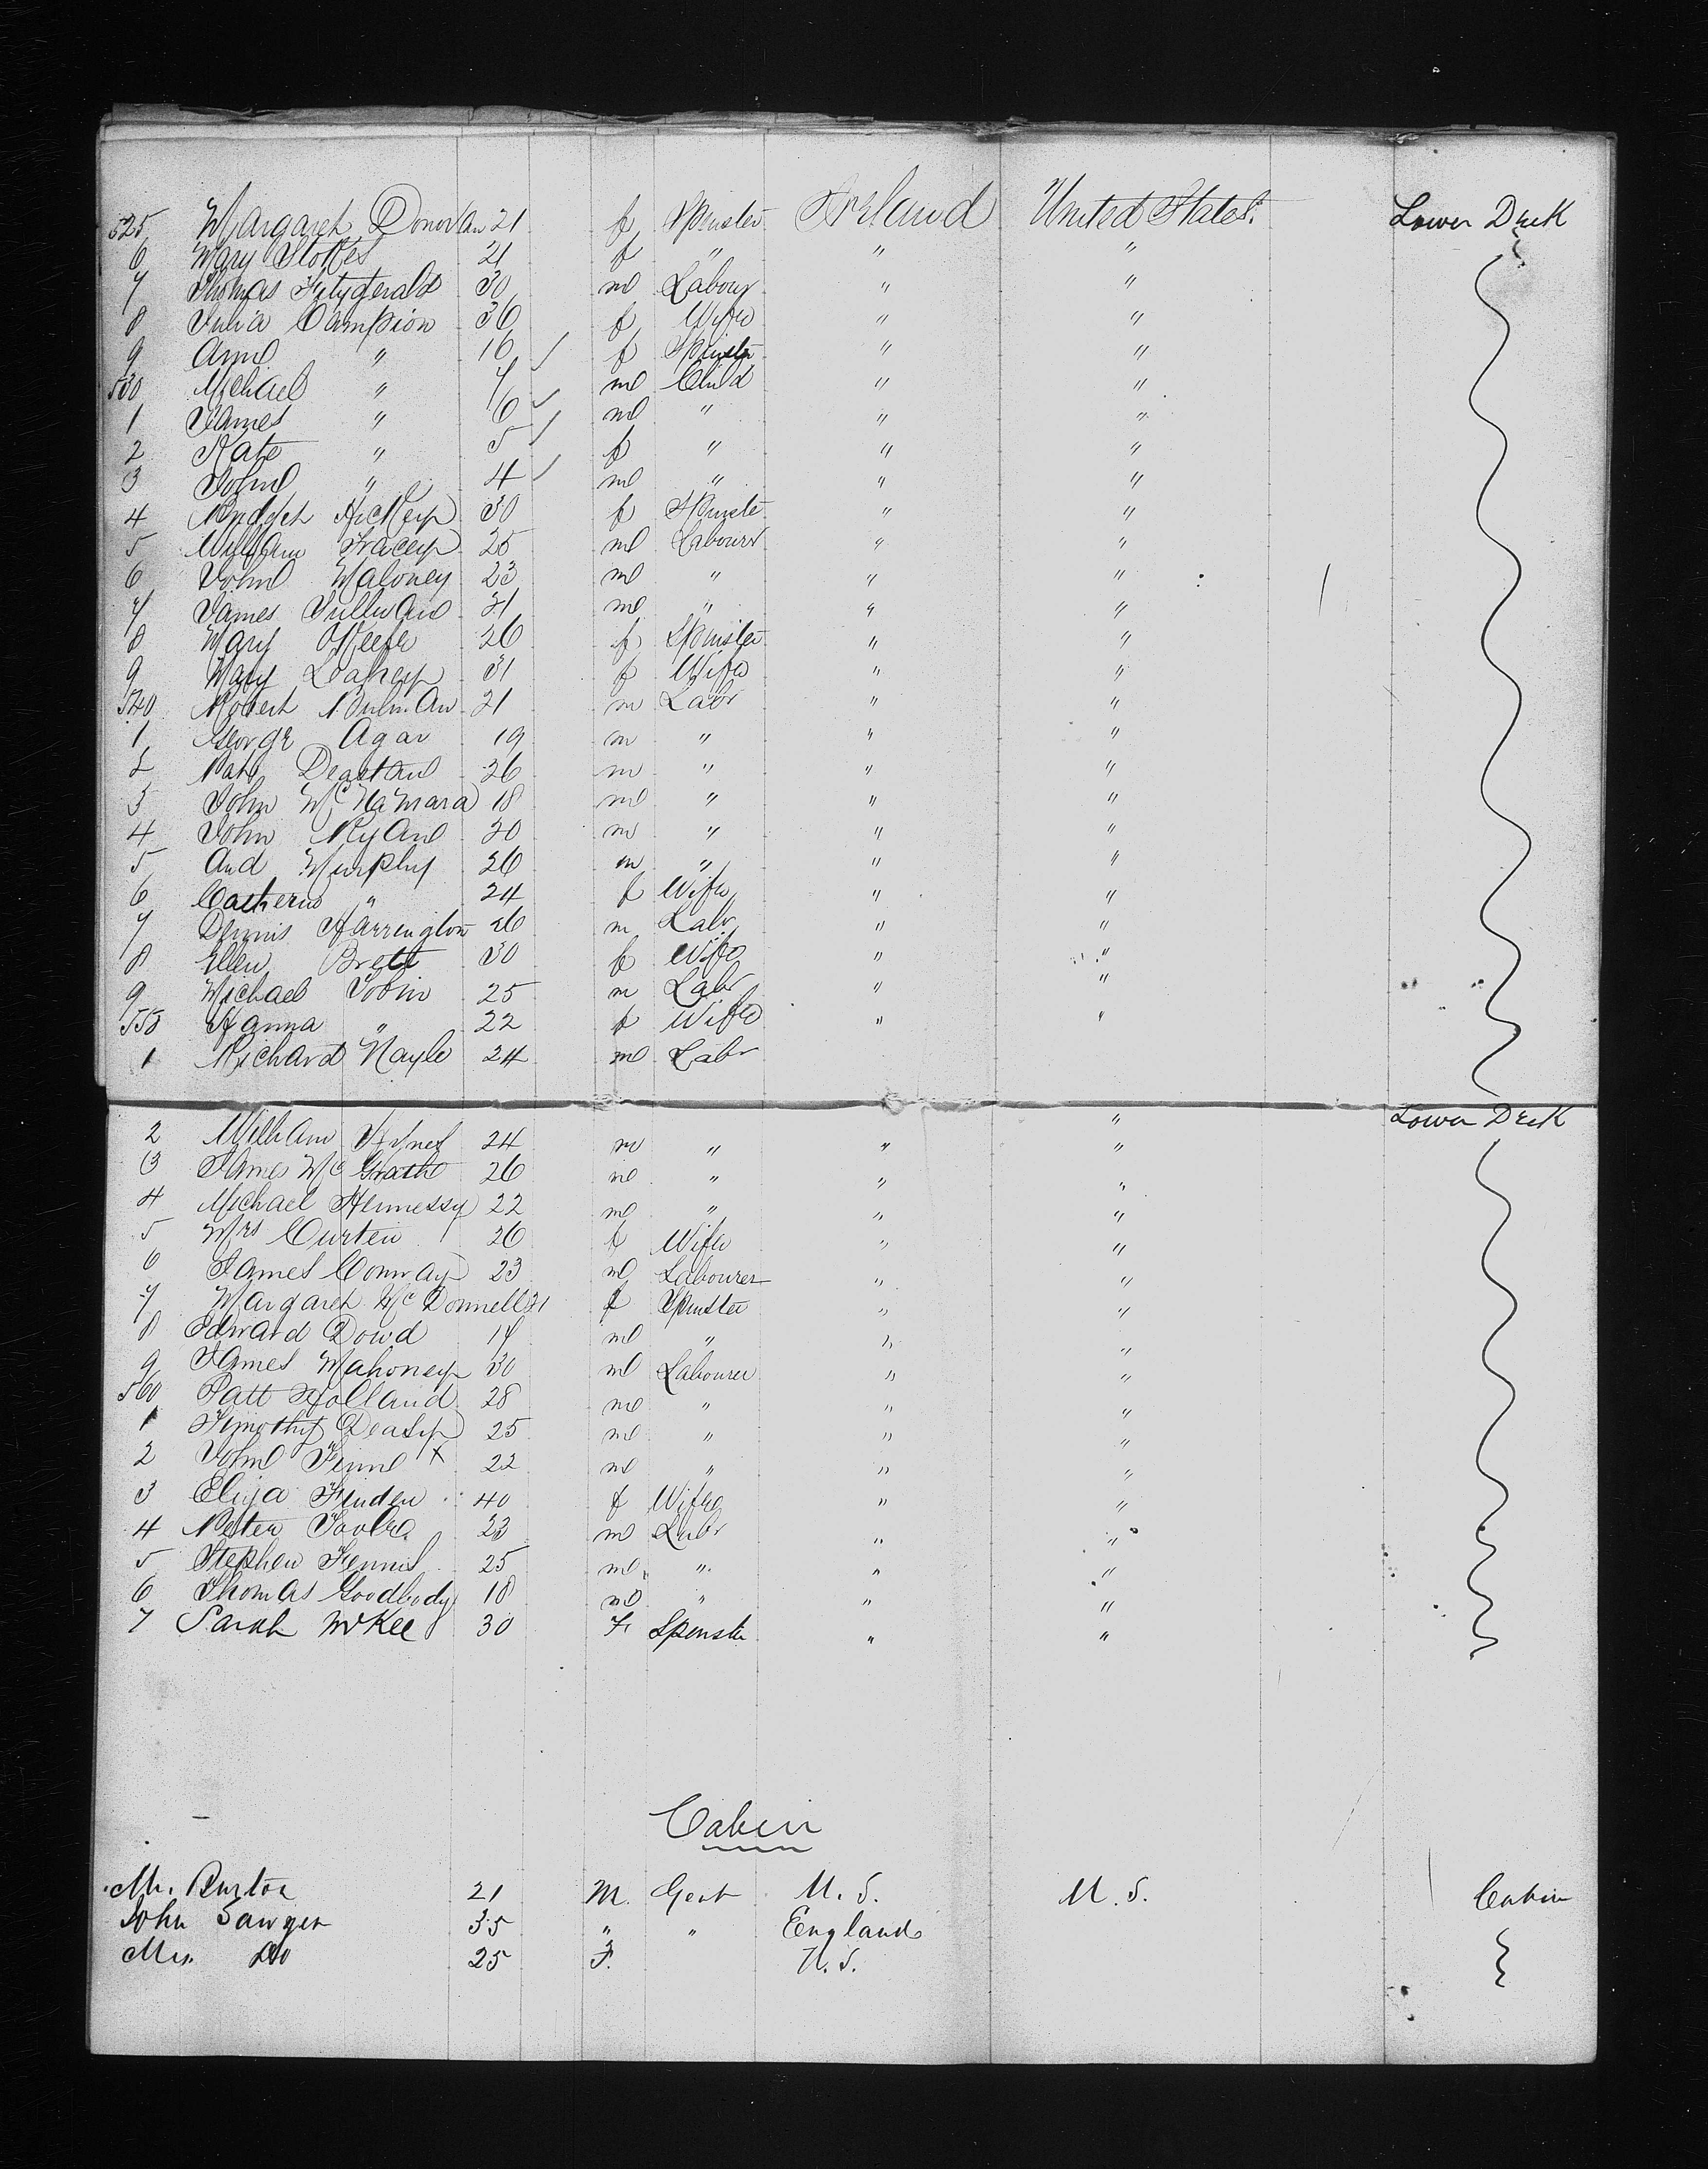 525 Margaret Donovan 21 f Spinster Ireland United States. Lower Deck
6 Mary Stokes 21 f " " "
7 Thomas Fitzgerald 30 m Labour " "
8 Julia Campion 36 f Wife " "
9 Ann " 10 f Spinster " "
530 Michael " 7 m Child " "
1 James " 6 m " " "
2 Kate " 5 f " " "
3 John " 4 m " " "
4 Bridget Hickey 30 f Spinste " "
5 William Tracey 25 m Labourr " "
6 John Maloney 23 m " " "
7 James Sullivan 21 m " " "
8 Mary OKeefe 26 f Spinster " "
9 Mary Leahey 31 f Wife " "
540 Robert 21 m Labr " "
1 George Agar 19 m " " "
2 Pat 26 m " " "
3 John McNamara 18 m " " "
4 John Ryan 20 m " " "
5 And Murphy 26 m " " "
6 Catherin " 24 f Wife " "
7 Dennis Harrington 26 m Labr " "
8 Ellen Brett 30 f Wife " "
9 Michael Tobin 25 m Labr " "
550 Hanna " 22 f Wife " "
1 Richard Nayle 24 m Labr
" Lower Deck
2 William 24 m " " "
3 James McGrath 26 m " " "
4 Michael Hennessy 22 m " " "
5 Mrs Curtin 26 f Wife " "
6 James Conway 23 m Labourer " "
7 Margaret McDonnell 21 f Spinster " "
8 Edward Dowd 17 m " " "
9 James Mahoney 30 m Labourer " "
560 Patt Holland 28 m " " "
1 Timothy Deasy 25 m " " "
2 John Finn x 22 m " " "
3 Eliza Finden 40 f Wife " "
4 Peter 23 m Labr " "
5 Stephen 25 m " " "
6 Thomas Goodbody 18 m " " "
7 Sarah McKee 30 F Spinster " "
Cabin
Mr. Burton 21 M. Gent U.S. U.S. Cabin
John Sawyer 35 " " England
Mrs. Do 25 F. U.S.